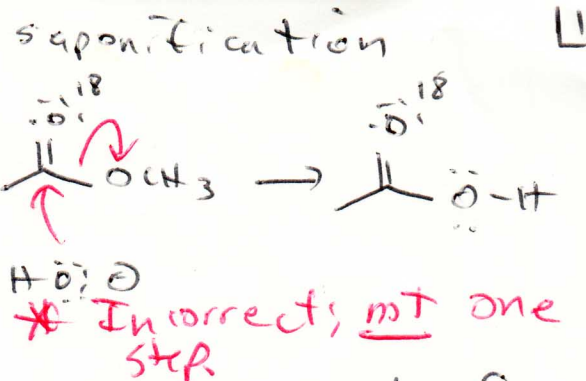 saponification
18
:O:
OCH3 → 
18
:O:
Ö-H
HÖ: ⊖
* Incorrect; not one
step.